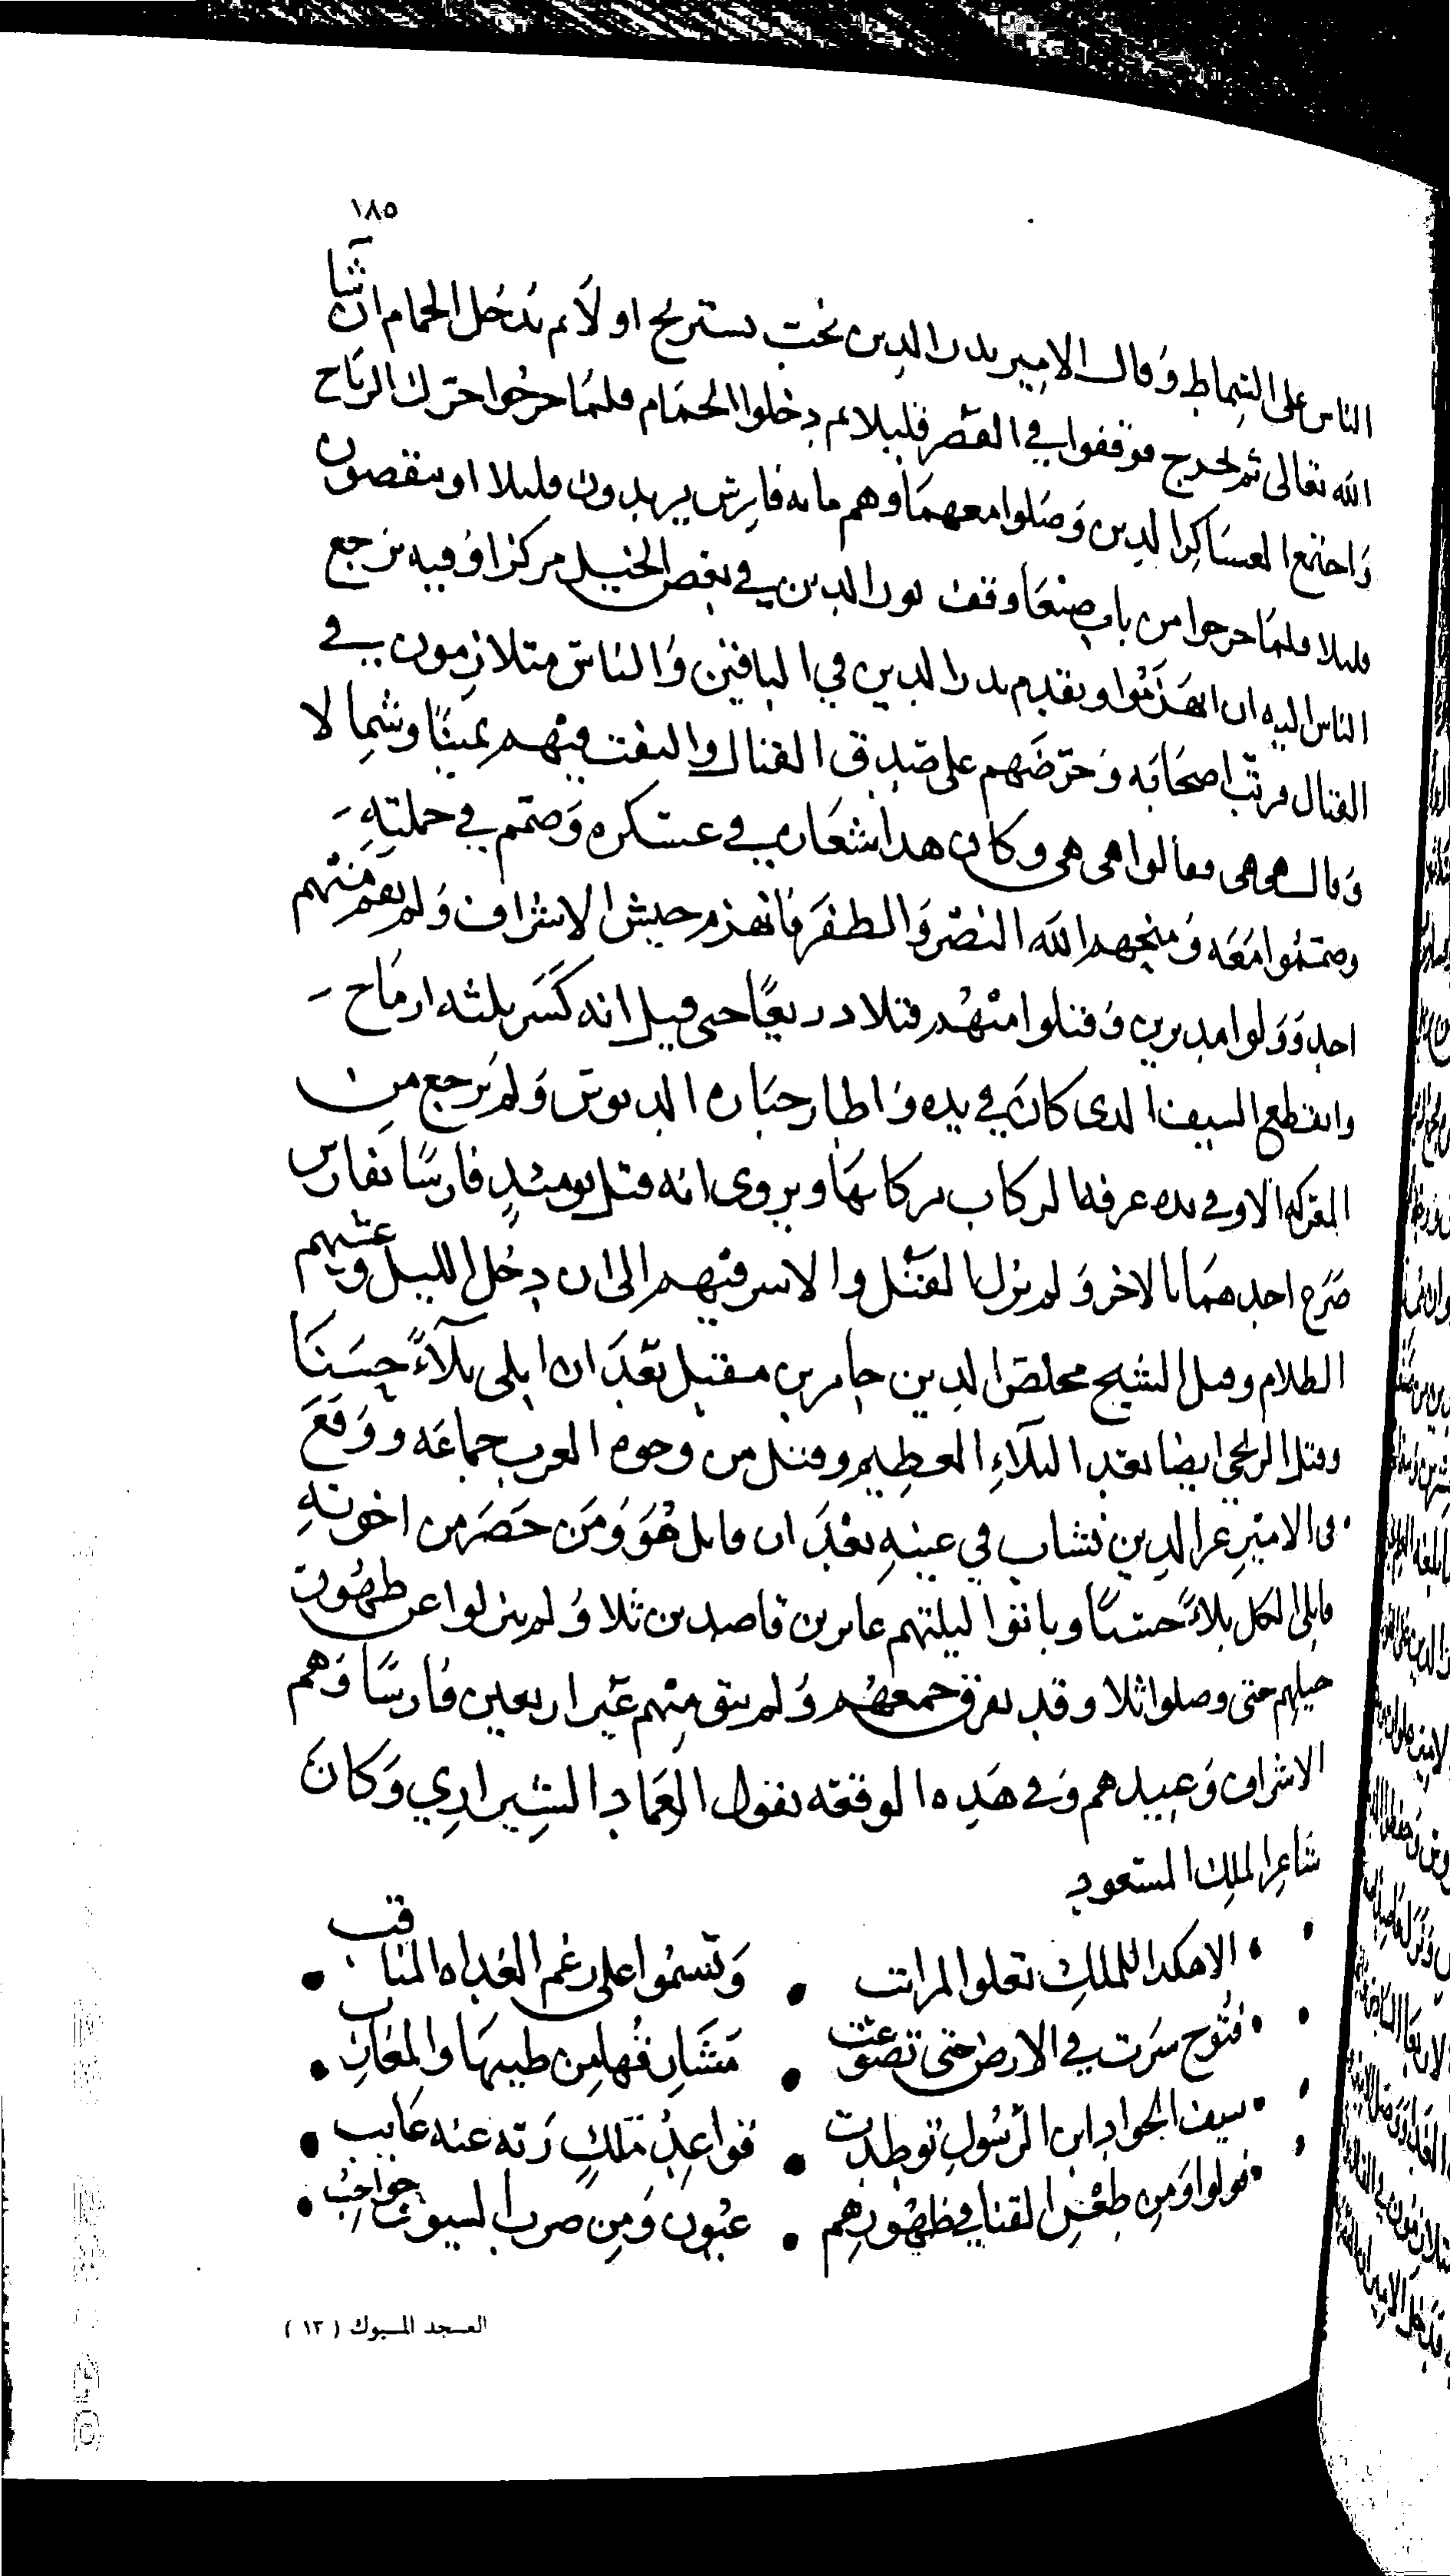 ١٨٥
الناس على السماط وقال الامير بدر الدين نحب نستريح اولا ثم ندخل الحمام ان شا
الله تعالى ثم نخرج فوقفوا في القصر قليلا ثم دخلوا الحمام فلما خرجوا حرك الرباح
واجتمع العساكر الذين وصلوا معهما وهم مايه فارس يزيدون قليلا او ينقصون
قليلا فلما خرجوا من باب صنعا وقف نور الدين في بعض الخيل مركزا وفيه نرجع
الناس اليه ان انهزموا وتقدم بدر الدين في الباقين والناس متلازمون في
القتال فرتب اصحابه وحرضهم على صدق القتال والتفت فيهم يمينا وشمالا
وقال هى هى فقالوا هى هى وكان هذا شعاره في عسكره وصمم في حملته
وصمموا معه ومنحهم الله النصر والظفر فانهزم جيش الاشراف ولم يقم منهم
احد وولوا مدبرين وقتلوا منهم قتلا ذريعا حتى قيل انه كسر ثلثه ارماح
وانقطع السيف الذى كان في يده واطار حباره الدبوس ولم يرجع من
المعركه الا وفي يده عرفها لركاب بركابها ويروى انه قتل يوميذ فارسا بفارس
ضرح احدهما بالاخر ولم يزل القتل والاسر فيهم الى ان دخل الليل وغشيهم
الظلام وقتل الشيخ مخلص الدين جابر بن مقبل بعد ان ابلى بلاء حسنا
وقتل الرىحى ايضا بعد البلاء العظيم وقتل من وجوه العرب جماعه ووقع
في الامير عز الدين نشاب في عينه بعد ان قاتل هو ومن حضر من اخوته
فابلى الكل بلاء حسنا وباتوا ليلتهم عابرين قاصدين ثلا ولم ينزلوا عن ظهور
خيلهم حتى وصلوا ثلا وقد تفرق جمعهم ولم يبق منهم غير اربعين فارسا وهم
الاشراف وعبيدهم وفي هذه الوقعه يقول العماد الشيرازي وكان
شاعر الملك المسعود
الا هكذا للملك تعلوا المراتب • وتسموا على رغم العداه المناقب
فتوح سرت في الارض حتى تضوعت • مشارقها من طيبها والمغارب
بسيف الجواد ابن الرسول توطدت • قواعد ملك ربه عنه غايب
فولوا ومن طعن القنا في ظهورهم • عيون ومن ضرب السيوف حواجب
العسجد المسبوك ( ١٣ )